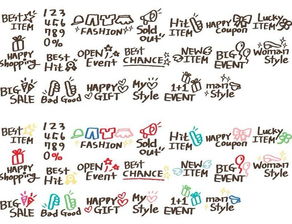 BEST ITEM
1 2 3
4 5 6
7 8 9
0 %
FASHION
Sold Out!
Hit ITEM
HAPPY Coupon
Lucky ITEM
HAPPY Shopping
BEST
OPEN Event
BEST CHANCE
NEW ITEM
BIG EVENT
Woman Style
BIG SALE
Bad Good
HAPPY GIFT
My Style
1+1 EVENT
man Style
BEST ITEM
1 2 3
4 5 6
7 8 9
0 %
FASHION
Sold OUT!
Hit ITEM
HAPPY Coupon
Lucky ITEM
HAPPY Shopping
BEST
OPEN Event
BEST CHANCE
NEW ITEM
BIG EVENT
Woman Style
BIG SALE
Bad Good
HAPPY GIFT
My Style
1+1 EVENT
man Style